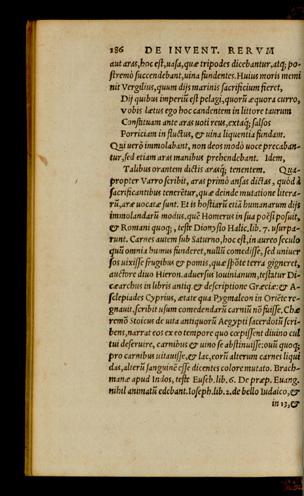 186 DE INVENT. RERVM
aut aras, hoc est, uasa, quæ tripodes dicebantur, atq; po-
stremò succendebant, uina fundentes. Huius moris memi
nit Vergilius, quum dijs marinis sacrificium fieret,
Dij quibus imperiũ est pelagi, quorũ æquora curro,
vobis lætus ego hoc candentem in littore taurum
Constituam ante aras uoti reus, extaq; salsos
Porriciam in fluctus, & uina liquentia fundam.
Qui uerò immolabant, non deos modò uoce precaban-
tur, sed etiam aras manibus prehendebant. Idem,
Talibus orantem dictis arasq; tenentem. Qua-
propter Varro scribit, aras primò ansas dictas, quòd à
sacrificantibus tenerẽtur, quæ deinde mutatione litera-
rũ, aræ uocatæ sunt. Et is hostiarũ etiã humanarum dijs
immolandarũ modus, quẽ Homerus in sua poësi posuit,
& Romani quoq;, teste Dionysio Halic. lib. 7. usurpa-
runt. Carnes autem sub Saturno, hoc est, in aureo seculo
quũ omnia humus funderet, nullũ comedisse, sed uniuer
sos uixisse frugibus & pomis, quæ spõte terra gigneret,
auctore diuo Hieron. aduersus Iouinianum, testatur Di-
cæarchus in libris antiq. & descriptione Græciæ: & A-
sclepiades Cyprius, ætate qua Pygmaleon in Oriẽte re-
gnauit, scribit usum comedendarũ carniũ nõ fuisse. Chæ
remõ stoicus de uita antiquorũ Aegypti sacerdotũ scri-
bens, narrat eos ex eo tempore quo cœpissent diuino cul
tui deseruire, carnibus & uino se abstinuisse: ouũ quoq;
pro carnibus uitauisse, & lac, eorũ alterum carnes liqui
das, alterũ sanguinẽ esse dicentes colore mutato. Brach-
manæ apud Indos, teste Euseb. lib. 6. De præp. Euang.
nihil animatũ edebant. Ioseph. lib. 2. de bello Iudaico, &
in 13, &